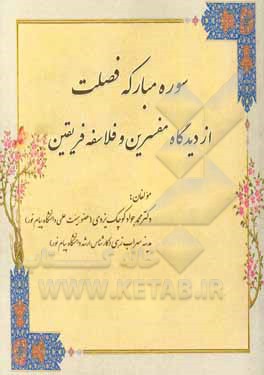 سوره مبارکه فصلت
از دیدگاه مفسرین و فلاسفه فریقین
مؤلفان:
دکتر محمد جواد کوچک یزدی (عضو هیئت علمی دانشگاه پیام نور)
سهراب نری (کارشناس ارشد دانشگاه پیام نور)
خانه کتاب
WWW.KETAB.IR